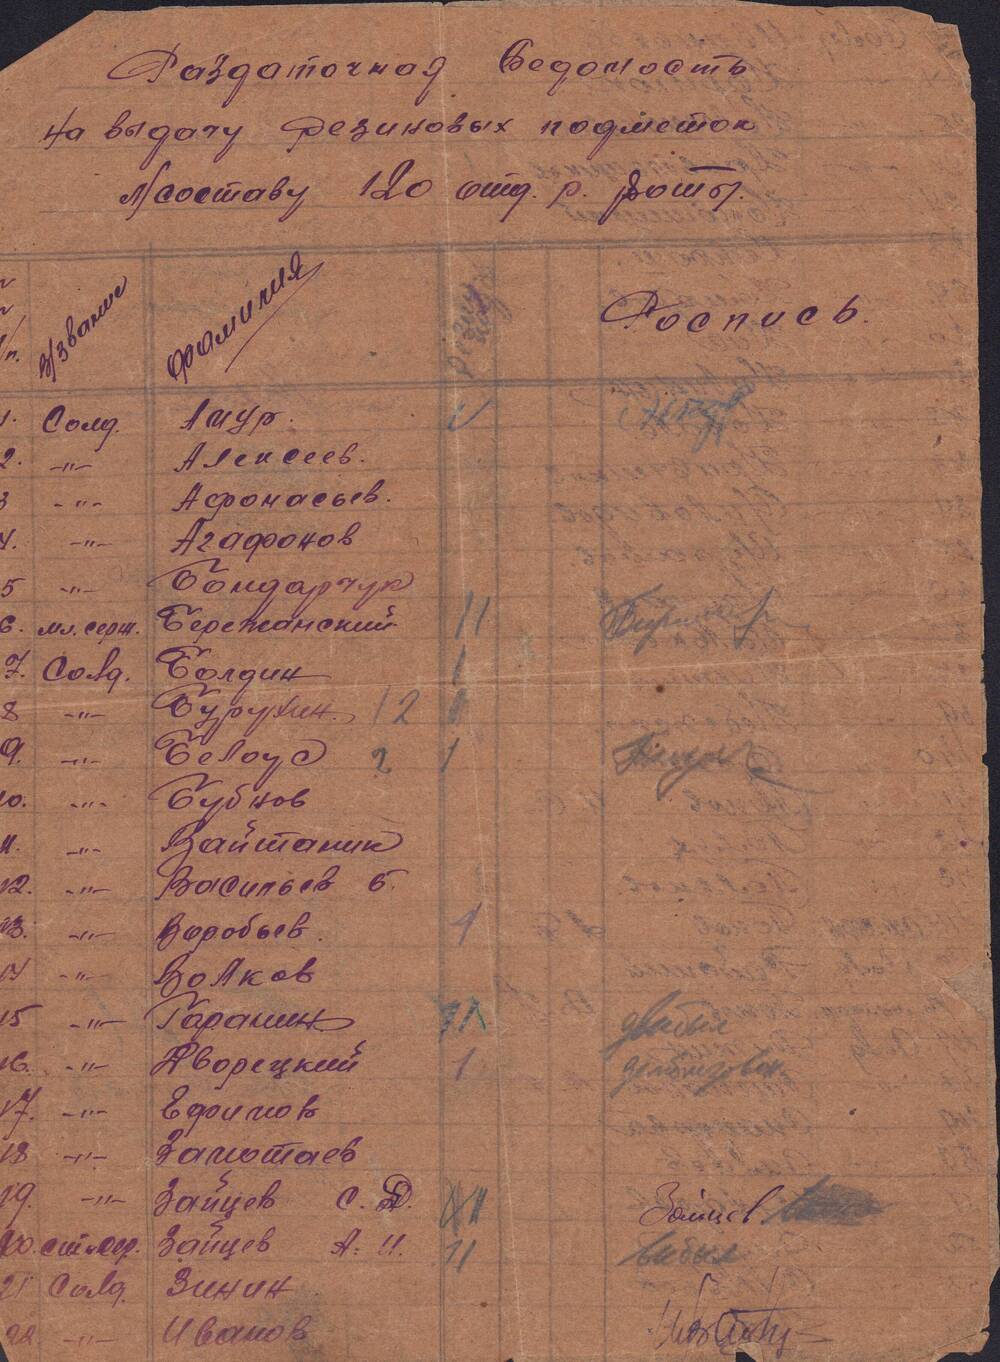 Раздаточная Ведомость
на выдачу резиновых подметок
л/составу 120 отд. р. роты.
№ п/п. в/звание фамилия Роспись.
1. Солд. Ашур.
2. -"- Алексеев.
3 -"- Афонасьев.
4. -"- Агафонов
5 -"- Бондарчук
6. мл. серж. Бережанский 11
7. Солд. Болдин 1
8 -"- Бурухин. 12
9. -"- Белоус 2 1
10. -"- Бубнов
11. -"- Вайтаник
12. -"- Васильев Б.
13. -"- Воробьев. 1
14 -"- Волков
15 -"- Гаранин
16. -"- Дворецкий 1
17. -"- Ефимов
18 -"- Замотаев
19. -"- Зайцев С. Д. Зайцев
20. ст. сер. Зайцев А. И. 11 выбыл
21 Солд. Зинин
22 -"- Иванов